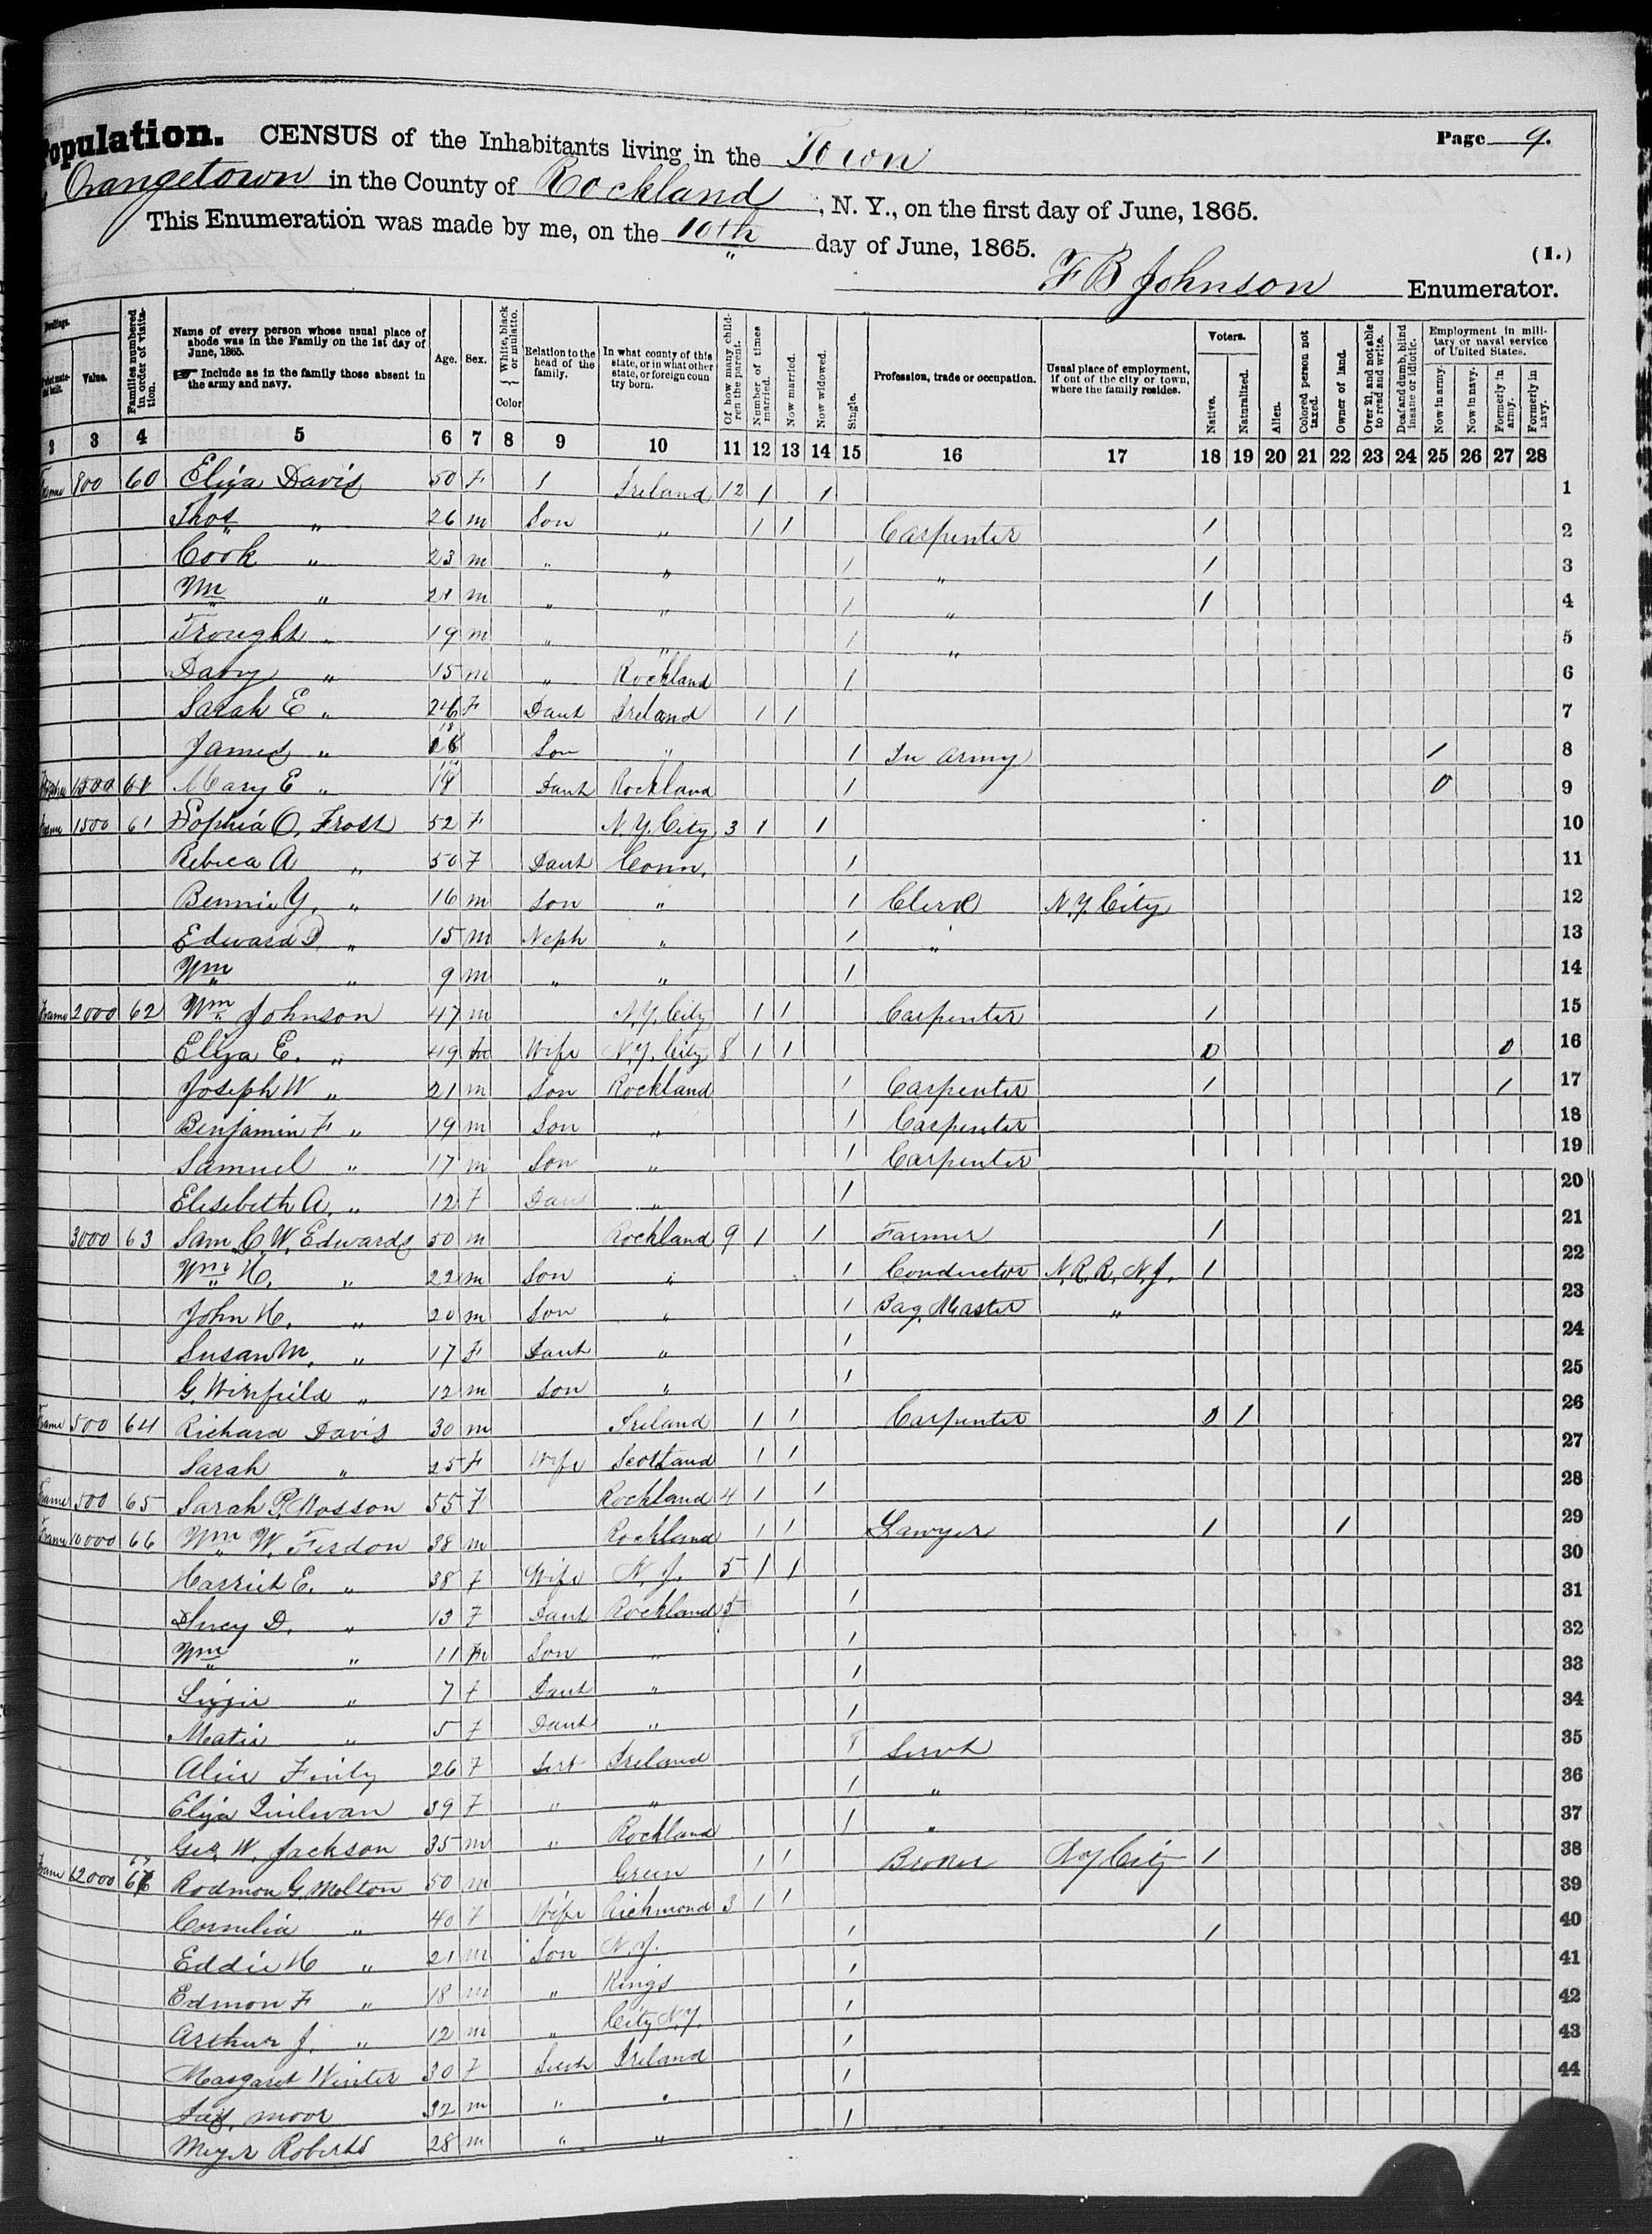 Population. CENSUS of the Inhabitants living in the Town Page 9.
Orangetown in the County of Rockland, N. Y., on the first day of June, 1865.
This Enumeration was made by me, on the 10th day of June, 1865. (1.)
F B Johnson Enumerator.
Value. Families numbered in order of visitation. Name of every person whose usual place of abode was in the Family on the 1st day of June, 1865. Include as in the family those absent in the army and navy. Age. Sex. White, black or mulatto. Color Relation to the head of the family. In what county of this state, or in what other state, or foreign country born. Of how many children the parent. Number of times married. Now married. Now widowed. Single. Profession, trade or occupation. Usual place of employment, if out of the city or town, where the family resides. Voters. Native. Naturalized. Alien. Colored person not taxed. Owner of land. Over 21, and not able to read and write. Deaf and dumb, blind insane or idiotic. Employment in military or naval service of United States. Now in army. Now in navy. Formerly in army. Formerly in navy.
2 3 4 5 6 7 8 9 10 11 12 13 14 15 16 17 18 19 20 21 22 23 24 25 26 27 28
Frame 800 60 Eliza Davis 50 F 1 Ireland 12 1 1 1
Thos " 26 m Son " 1 1 Carpenter 1 2
Cook " 23 m " " 1 " 1 3
Wm " 21 m " " 1 " 1 4
Frought " 19 m " " 1 " 5
Davy " 15 m " Rockland 1 6
Sarah E " 26 F Daut Ireland 1 1 7
James " 18 Son " 1 In army 1 8
1500 61 Mary E " Daut Rockland 1 0 9
Frame 1500 61 Sophia O. Frost 52 F N.Y. City 3 1 1 10
Rebica A " 50 F Daut Conn. 1 11
Bennie Y. " 16 m Son " 1 Clerk N.Y. City 12
Edward D. " 15 m Neph " 1 " 13
Wm " 9 m " " 1 14
Frame 2000 62 Wm Johnson 47 m N.Y. City 1 1 Carpenter 1 15
Eliza E. " 49 Wife N.Y. City 8 1 1 0 0 16
Joseph W " 21 m Son Rockland 1 Carpenter 1 1 17
Benjamin F " 19 m Son " 1 Carpenter 18
Samuel " 17 m Son " 1 Carpenter 19
Elesebeth A. " 12 F Daut " 1 20
3000 63 Sam C. W. Edwards 50 m Rockland 9 1 1 Farmer 1 21
Wm H. " 22 m Son " 1 Conductor N.R.R. N.J. 1 22
John H. " 20 m Son " 1 Bag. Master " 23
Susan M. " 17 F Daut " 1 24
G. Winfield " 12 m Son " 1 25
Frame 500 64 Richard Davis 30 m Ireland 1 1 Carpenter 0 1 26
Sarah " 25 F Wife Scotland 1 1 27
Frame 500 65 Sarah P. Mosson 55 F Rockland 4 1 1 28
Frame 10000 66 Wm W. Ferdon 38 m Rockland 1 1 Lawyer 1 1 29
Harriet E. " 38 F Wife N. J. 5 1 1 30
D. " 13 F Daut Rockland 5 1 31
Wm " 11 m Son " 1 32
Lizzie " 7 F Daut " 1 33
Matie " 5 F Daut " 1 34
Alice Finly 26 F Serv Ireland 1 Servt 35
Eliza 39 F " " 1 " 36
Geo. W. Jackson 35 m " Rockland 1 " 37
Frame 12000 67 Rodmon G. Molton 50 m Green 1 1 Broker N Y City 1 38
Cornelia " 40 F Wife Richmond 3 1 1 39
Eddie H " 21 m Son N. J. 1 1 40
Edmon F " 18 m " Kings 1 41
Arthur J. " 12 m " City N.Y. 1 42
Margaret Winter 30 F Servt Ireland 1 43
moor 32 m " " 1 44
Meyer Roberts 28 m " " 1